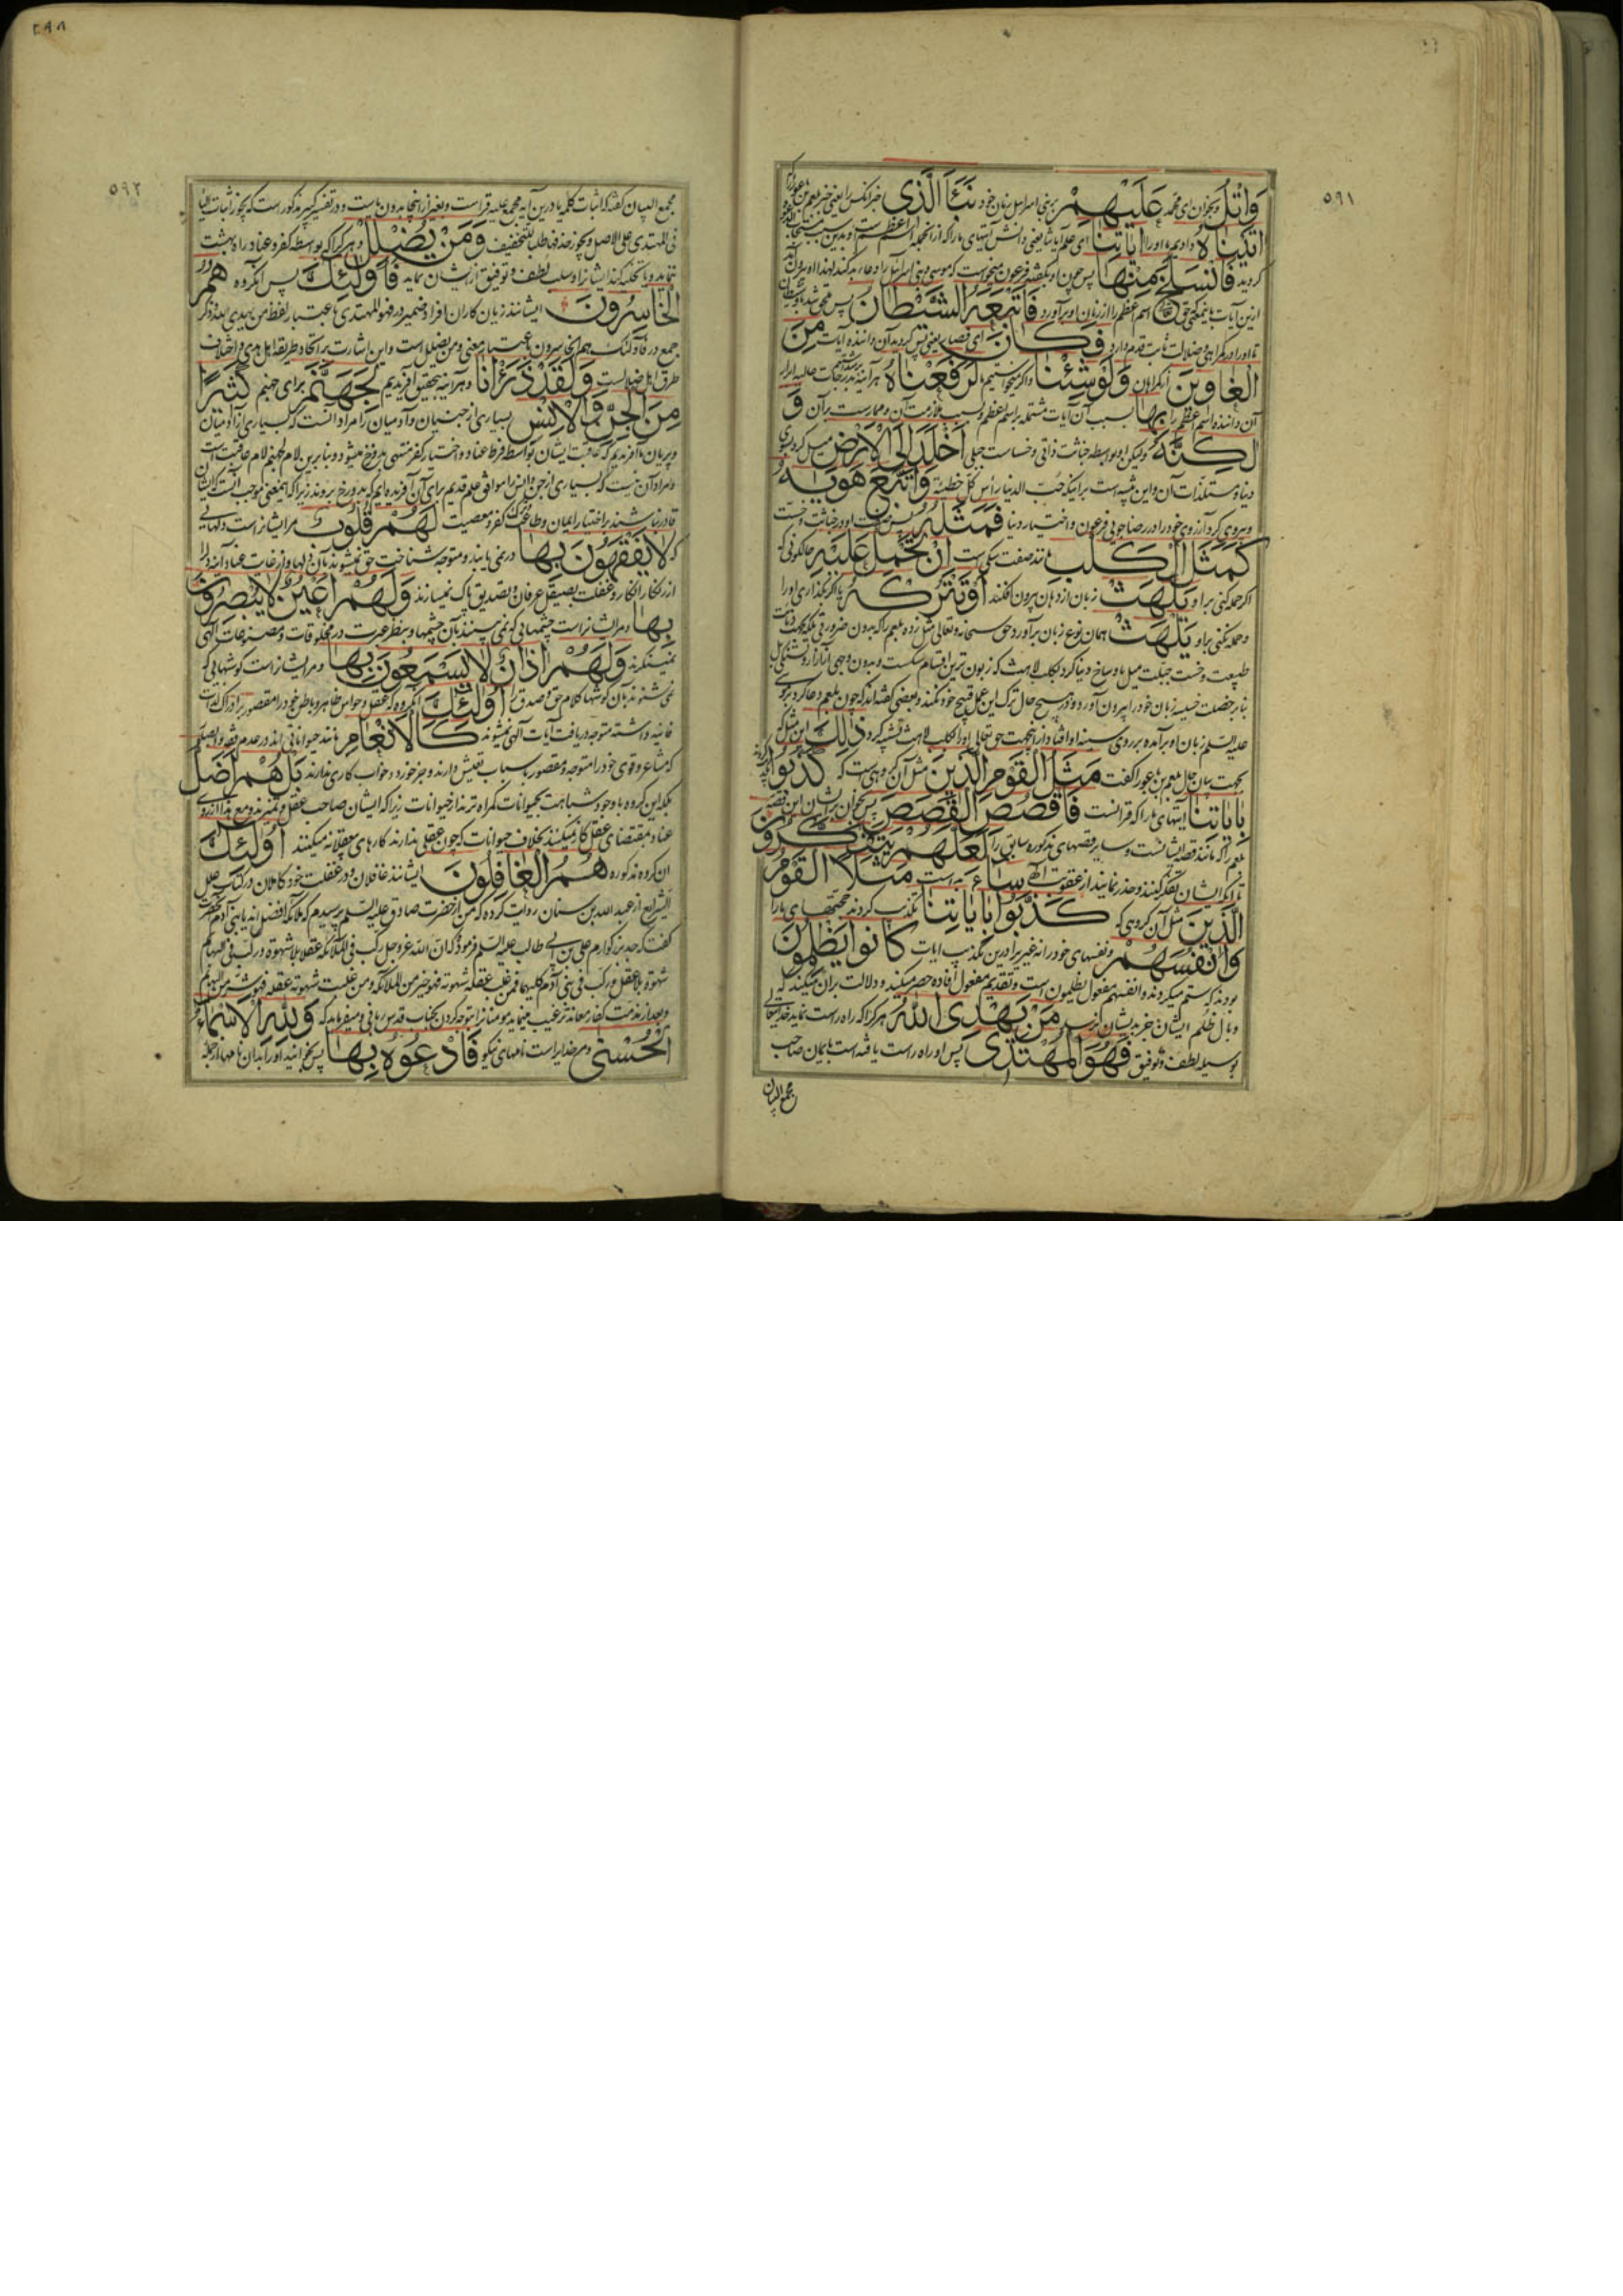 ٥٩١
وَاتْلُ و بخوان ای محمد عَلَيْهِمْ بر بنی اسرائیل زبان خود نَبَأَ الَّذِي خبر آنکس را یعنی خبر بلعم بن باعورا
اتَيْنَاهُ دادیم ما او را ايَاتِنَا ای علم آیاتنا یعنی دانش آیتهای ما را که از آنجمله اسم اعظم است و بدین سبب
کردید فَانْسَلَخَ مِنْهَا پس چون او بگفته فرعون میخواست که موسی و بنی اسرائیل را دعاء بد کند لهذا او بیرون
ازین آیات باینمعنی که حق تعالی اسم اعظم را از زبان او برآورد فَاَتْبَعَهُ الشَّيْطَانُ پس
تا او را در گمراهی و ضلالت ثابت قدم دارد فَكَانَ ای فصار یعنی پس کردید آن داننده آیات مِنَ
الْغَاوِينَ از گمراهان وَلَوْشِئْنَا و اگر میخواستیم ما لَرَفَعْنَاهُ هر آینه بدرجات عالیه ابرار
آن داننده اسم اعظم را بِهَا بسبب آن آیات مشتمله بر اسم اعظم و بسبب ملازمت آن و ممارست بر آن وَ
لكِنَّهُ ولیکن او بواسطه خباثت ذاتی و خساست جبلی اَخْلَدَ اِلَى الْاَرْضِ میل کرد بسوی
دنیا و مستلذات آن و این بر اینکه حب الدنیا رأس کل خطیئة وَاتَّبَعَ هَويهُ
و پیروی کرد آرزوی خود را در رضا جویی فرعون و اختیار دنیا فَمَثَلُهُ پس صفت او در خباثت و خست
كَمَثَلِ الْكَلْبِ مانند صفت سگی است اِنْ تَحْمِلْ عَلَيْهِ
اگر حمله کنی بر او يَلْهَثْ زبان از دهان بیرون افکند اَوْتَتْرُكْهُ یا اگر بگذاری او را
و حمله نکنی بر او يَلْهَثْ همان نوع زبان برآورد حق سبحانه و تعالی مثل زده بلعم را که بدون ضرورتی بلکه بجهت دنائت
طبیعت و خست جبلت میل باوساخ دنیا کرد بکلب لاهث که زبون ترین اقسام سگست و بدون وجهی
بنابر خصلت خسیسه زبان خود را بیرون آورد و در هیچ حال ترک این عمل قبیح خود نکند و بعضی گفته اند که چون بلعم دعا کرد بر موسی
علیه السلم زبان او برآمده بر روی سینه او افتاد از اینجهت حق تعالی او را بکلب لاهث تشبیه کرد ذلِكَ این مثل که
بجهت بیان حال بلعم بن باعورا گفت مَثَلُ الْقَوْمِ الَّذِينَ مثل آن گروهی است که كَذَّبُوا
بِايَاتِنَا آیتهای ما را که قرآنست فَاقْصُصِ الْقَصَصَ پس بخوان بر ایشان این قصه
بلعم را که مانند قصه ایشانست و سایر قصهای مذکوره سابق را لَعَلَّهُمْ يَتَفَكَّرُونَ
تا اینکه ایشان تفکر کنند و حذر نمایند از عقوبت الهی سَاءَ بد است مَثَلًا الْقَوْمُ
الَّذِينَ مثل آن گروهی که كَذَّبُوا بِايَاتِنَا تکذیب کردند حجتهای ما را
وَاَنْفُسَهُمْ و نفسهای خود را نه غیر را درین تکذیب آیات كَانُوا يَظْلِمُونَ
بودند که ستم میکردند و انفسهم مفعول یظلمون است و تقدیم مفعول افاده حصر میکند و دلالت بر آن میکند که
وبال ظلم ایشان جز بدیشان نرسد مَنْ يَهْدِى اللهُ هر کرا که راه راست نماید خدایتعالی
بوسیله لطف و توفیق فَهُوَالْمُهْتَدِى پس او راه راست یافته است بایمان صاحب
مجمع البیان
٢٩٨
٥٩٢
مجمع البیان گفته که اثبات کلمه یا درین آیه مجمع علیه قراست و بغیر از اینجا بدون یا است و در تفسیر کبیر مذکور است که یجوز اثبات الیاء
فی المهتدی علی الاصل و یجوز حذفها طلبا للتخفیف وَمَنْ يُضْلِلْ و هر کرا که بواسطه کفر و عناد راه بهشت
ننماید و یا تخلیه کند ایشانرا و سلب لطف و توفیق از ایشان نماید فَاُولئِكَ پس آنگروه هُمُ
الْخَاسِرُونَ ایشانند زیان کاران افراد ضمیر در فهو المهتدی باعتبار لفظ من یهدی الله و ذکر
جمع در فاولئک هم الخاسرون باعتبار معنی و من یضلل است و این اشارت بر اتحاد طریقه اهل هدی و اختلاف
طرق اهل ضلالست وَلَقَدْ ذَرَأْنَا و هر آینه بتحقیق آفریدیم لِجَهَنَّمَ برای جهنم كَثِيرًا
مِنَ الْجِنِّ وَالْاِنْسِ بسیاری از جنیان و آدمیان را مراد آنست که بسیاری از آدمیان
و پریان ما آفریدیم که عاقبت ایشان بواسطه فرط عناد و اختیار کفر منتهی بدوزخ میشود و بنابرین لام لجهنم لام عاقبت است
و مراد آن نیست که بسیاری از جن و انس را موافق علم قدیم برای آن آفریده ایم که بدوزخ بروند زیرا که اینمعنی موجب آنست که ایشان
قادر نباشند بر اختیار ایمان و طاعت کفر و معصیت لَهُمْ قُلُوبٌ مر ایشانراست دلهایی
که لَا يَفْقَهُونَ بِهَا در نمی یابند و متوجه شناخت حق نمیشوند بآن دلها و از غایت عناد آینه دل را
از زنگار انکار و غفلت بصیقل عرفان و تصدیق پاک نمیسازند وَلَهُمْ اَعْيُنٌ لَايُبْصِرُونَ
بِهَا و مر ایشانراست چشمهایی که نمی بینند بآن چشمها و بنظر عبرت در مخلوقات و مصنوعات الهی
نمینگرند وَلَهُمْ اذَانٌ لَا يَسْمَعُونَ بِهَا و مر ایشانراست گوشهایی که
نمی شنوند بآن گوشها کلام حق و صدق را اُولئِكَ آنگروه که عقل و حواس ظاهر و باطن خود را مقصور بر ادراک لذات
فانیه داشته متوجه دریافت آیات الهی نمیشوند كَالْاَنْعَامِ مانند حیوانات اند در عدم فهم و اینکه
که مشاعر و قوی خود را متوجه و مقصور باسباب تعیش دارند و جز خورد و خواب کاری ندارند بَلْ هُمْ اَضَلُّ
بلکه این گروه با وجود شباهت بحیوانات گمراه ترند از حیوانات زیرا که ایشان صاحب عقل و تمیزند و مع هذا از روی
عناد بمقتضای عقل کار نمیکنند بخلاف حیوانات که چون عقلی ندارند کارهای بیعقلانه میکنند اُولئِكَ
آن گروه مذکوره هُمُ الْغَافِلُونَ ایشانند غافلان و در غفلت خود کاملان در کتاب علل
الشرایع از عبد الله بن سنان روایت کرده که من از حضرت صادق علیه السلم پرسیدم که ملائکه افضل اند یا بنی آدم
گفت که جد بزرگوارم علی بن ابی طالب علیه السلم فرمود که ان الله عز و جل رکب فی الملائکه عقلا بلا شهوة و رکب فی البهایم
شهوة بلا عقل و رکب فی بنی آدم کلیهما فمن غلب عقله شهوته فهو خیر من الملائکه و من غلبت شهوته عقله فهو شر من البهایم
و بعد از مذمت کفار معاند ترغیب مینماید مومنانرا بتوجه کردن بجناب قدس ربانی و میفرماید که وَلِلّٰهِ الْاَسْمَاءُ
الْحُسْنى و مر خدایراست نامهای نیکو فَادْعُوهُ بِهَا پس بخوانید او را بدان نامها از جمله